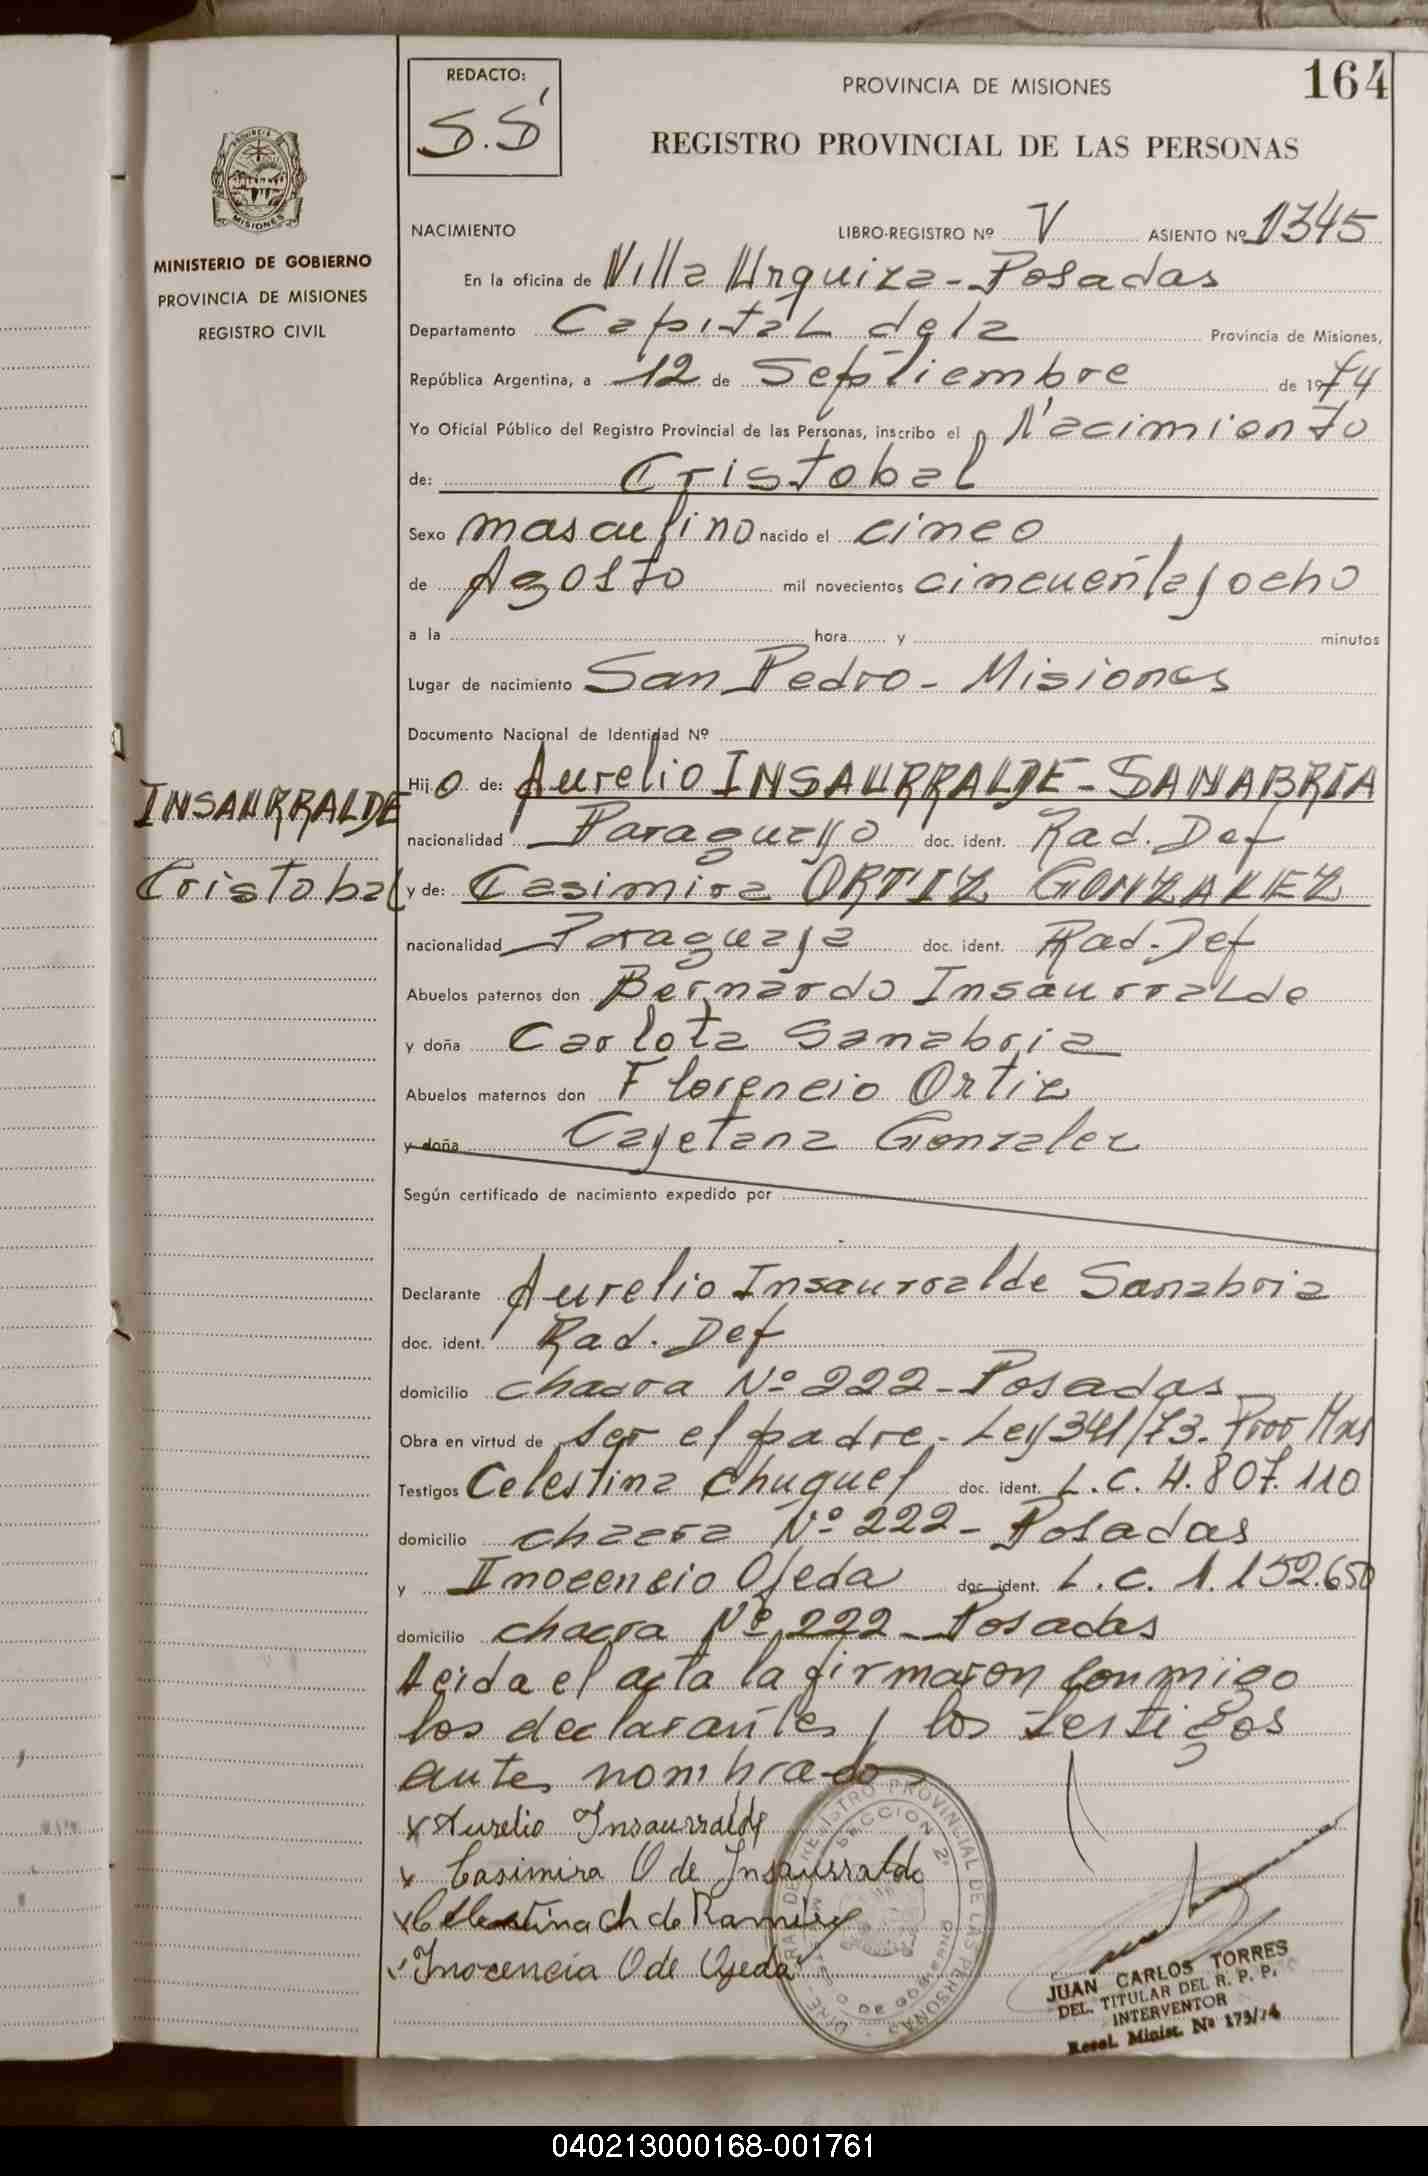 164
REDACTO:
S.S
PROVINCIA DE MISIONES
REGISTRO PROVINCIAL DE LAS PERSONAS
PROVINCIA
MISIONES
MINISTERIO DE GOBIERNO
PROVINCIA DE MISIONES
REGISTRO CIVIL
NACIMIENTO LIBRO-REGISTRO Nº V ASIENTO Nº 1345
En la oficina de Villa Urquiza - Posadas
Departamento Capital de la Provincia de Misiones,
República Argentina, a 12 de Septiembre de 1974
Yo Oficial Público del Registro Provincial de las Personas, inscribo el Nacimiento
de: Cristobal
Sexo masculino nacido el cinco
de Agosto mil novecientos cincuenta y ocho
a la hora y minutos
Lugar de nacimiento San Pedro - Misiones
Documento Nacional de Identidad Nº
Hijo de: Aurelio INSAURRALDE - SANABRIA
INSAURRALDE
Cristobal
nacionalidad Paraguayo doc. ident. Rad. Def
y de: Casimira ORTIZ GONZALEZ
nacionalidad Paraguaya doc. ident. Rad. Def
Abuelos paternos don Bernardo Insaurralde
y doña Carlota Sanabria
Abuelos maternos don Florencio Ortiz
y doña Cayetana Gonzalez
Según certificado de nacimiento expedido por
Declarante Aurelio Insaurralde Sanabria
doc. ident. Rad. Def
domicilio chacra Nº 222 - Posadas
Obra en virtud de ser el padre - Ley 341/73. Prov Mns
Testigos Celestina Chuquel doc. ident. L.C. 4.807.110
domicilio chacra Nº 222 - Posadas
y Inocencio Ojeda doc. ident. L.C. 1.152.650
domicilio chacra Nº 222 - Posadas
Leida el acta la firmaron conmigo
los declarantes y los testigos
antes nombrado
x Aurelio Insaurralde
x Casimira O de Insaurralde
x Celestina Ch de Ramirez
Inocencia O de Ojeda
REGISTRO PROVINCIAL DE LAS PERSONAS
SECCION 2ª
JUAN CARLOS TORRES
DEL. TITULAR DEL R. P. P.
INTERVENTOR
Resol. Minist. Nº 173/74
040213000168-001761